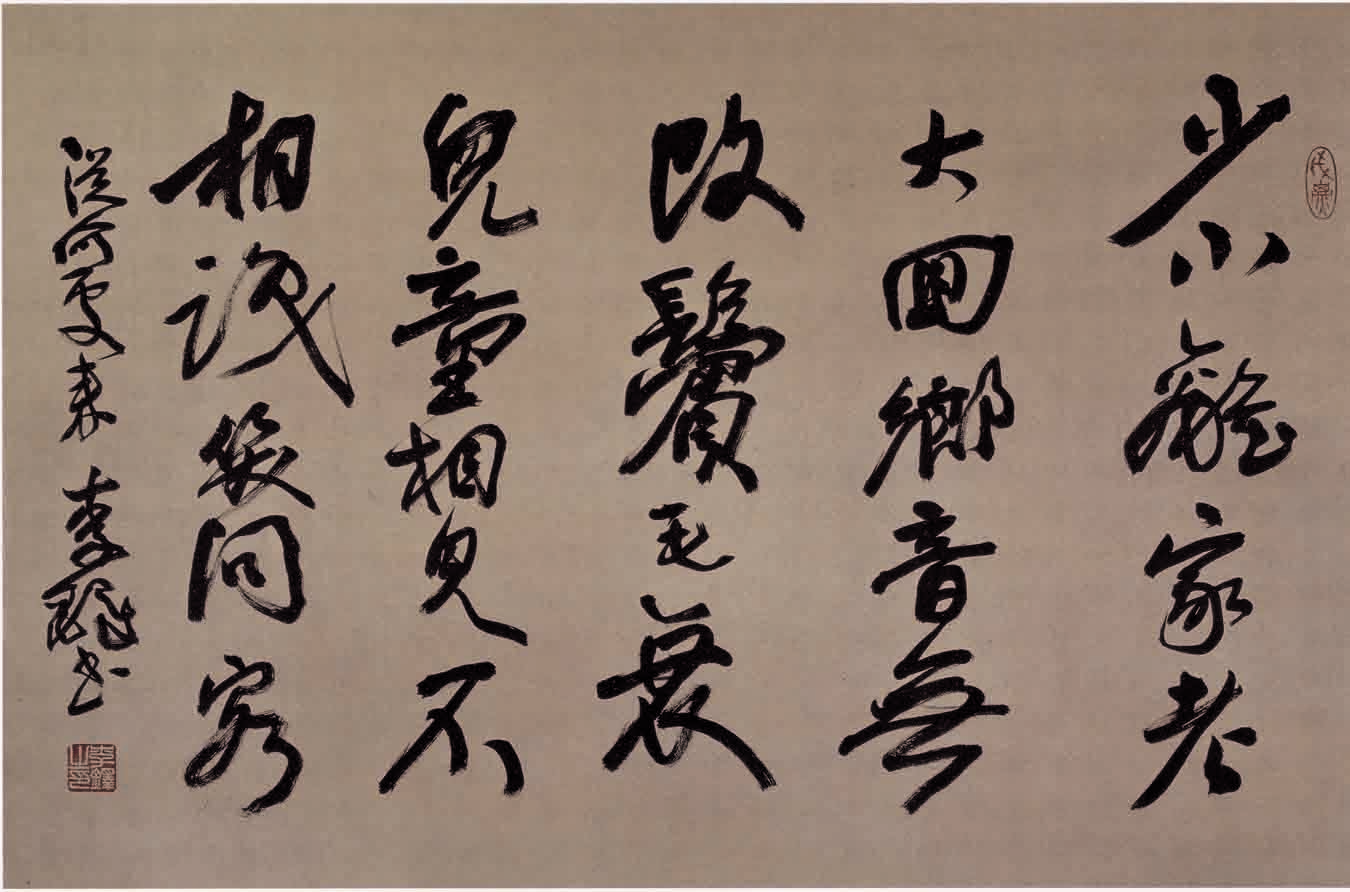 少小離家老
大回鄉音無
改鬢毛衰
兒童相見不
相識笑問客
從何處來 李鐸書
李鐸之印